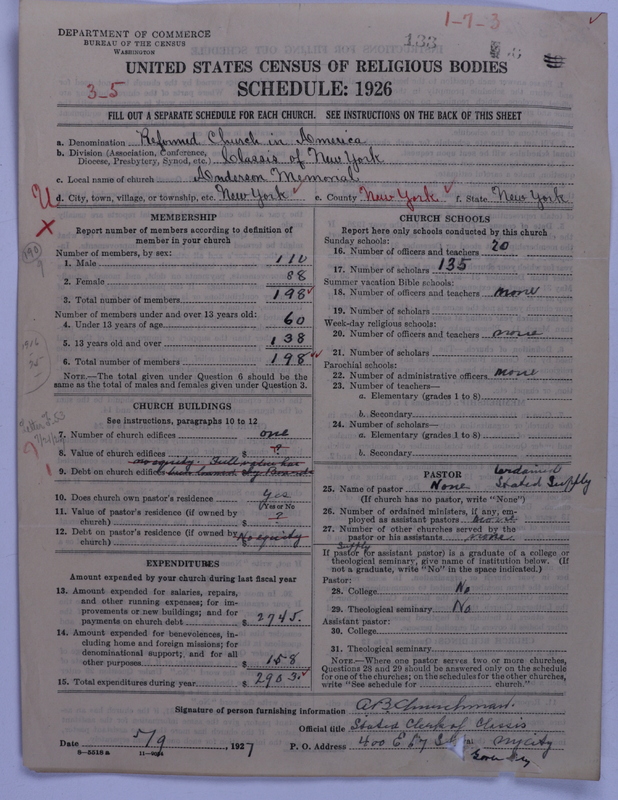 1-7-3
133
DEPARTMENT OF COMMERCE
BUREAU OF THE CENSUS
WASHINGTON
UNITED STATES CENSUS OF RELIGIOUS BODIES
3-5
SCHEDULE: 1926
FILL OUT A SEPARATE SCHEDULE FOR EACH CHURCH. SEE INSTRUCTIONS ON THE BACK OF THIS SHEET
a. Denomination Reformed Church in America
b. Division (Association, Conference, Diocese, Presbytery, Synod, etc.) Classis of New York
c. Local name of church Anderson Memorial
d. City, town, village, or township, etc. New York e. County New York f. State New York
MEMBERSHIP
Report number of members according to definition of
member in your church
Number of members, by sex:
1. Male 110
2. Female 88
3. Total number of members 198
Number of members under and over 13 years old:
4. Under 13 years of age 60
5. 13 years old and over 138
6. Total number of members 198
NOTE.—The total given under Question 6 should be
same as the total of males and females given under Question 3.
CHURCH BUILDINGS
See instructions, paragraphs 10 to 12
7. Number of church edifices one
8. Value of church edifices $ ?
no equity.
9. Debt on church edifices
10. Does church own pastor's residence Yes
(Yes or No)
11. Value of pastor's residence (if owned by
church) $ ?
12. Debt on pastor's residence (if owned by
church) $ No equity
EXPENDITURES
Amount expended by your church during last fiscal year
13. Amount expended for salaries, repairs,
and other running expenses; for im-
provements or new buildings; and for
payments on church debt $ 2745.
14. Amount expended for benevolences, in-
cluding home and foreign missions; for
denominational support; and for all
other purposes $ 158
15. Total expenditures during year $ 2903.
CHURCH SCHOOLS
Report here only schools conducted by this church
Sunday schools:
16. Number of officers and teachers 20
17. Number of scholars 135
Summer vacation Bible schools:
18. Number of officers and teachers none
19. Number of scholars
Week-day religious schools:
20. Number of officers and teachers none
21. Number of scholars
Parochial schools:
22. Number of administrative officers none
23. Number of teachers—
a. Elementary (grades 1 to 8)
b. Secondary
24. Number of scholars—
a. Elementary (grades 1 to 8)
b. Secondary
PASTOR
25. Name of pastor None Stated Supply
(If church has no pastor, write "None")
26. Number of ordained ministers, if any, em-
ployed as assistant pastors none
27. Number of other churches served by the
pastor or his assistants none
Supply
If pastor (or assistant pastor) is a graduate of a college or
theological seminary, give name of institution below. (If
not a graduate, write "No" in the space indicated.)
Pastor:
28. College No
29. Theological seminary No
Assistant pastor:
30. College
31. Theological seminary
NOTE.—Where one pastor serves two or more churches,
Questions 28 and 29 should be answered only on the schedule
for one of the churches; on the schedules for the other churches,
write "See schedule for church."
Signature of person furnishing information A B Churchman.
Official title Stated Clerk of Classis
Date 5/9, 1927 P. O. Address 400 E
8—5518 a